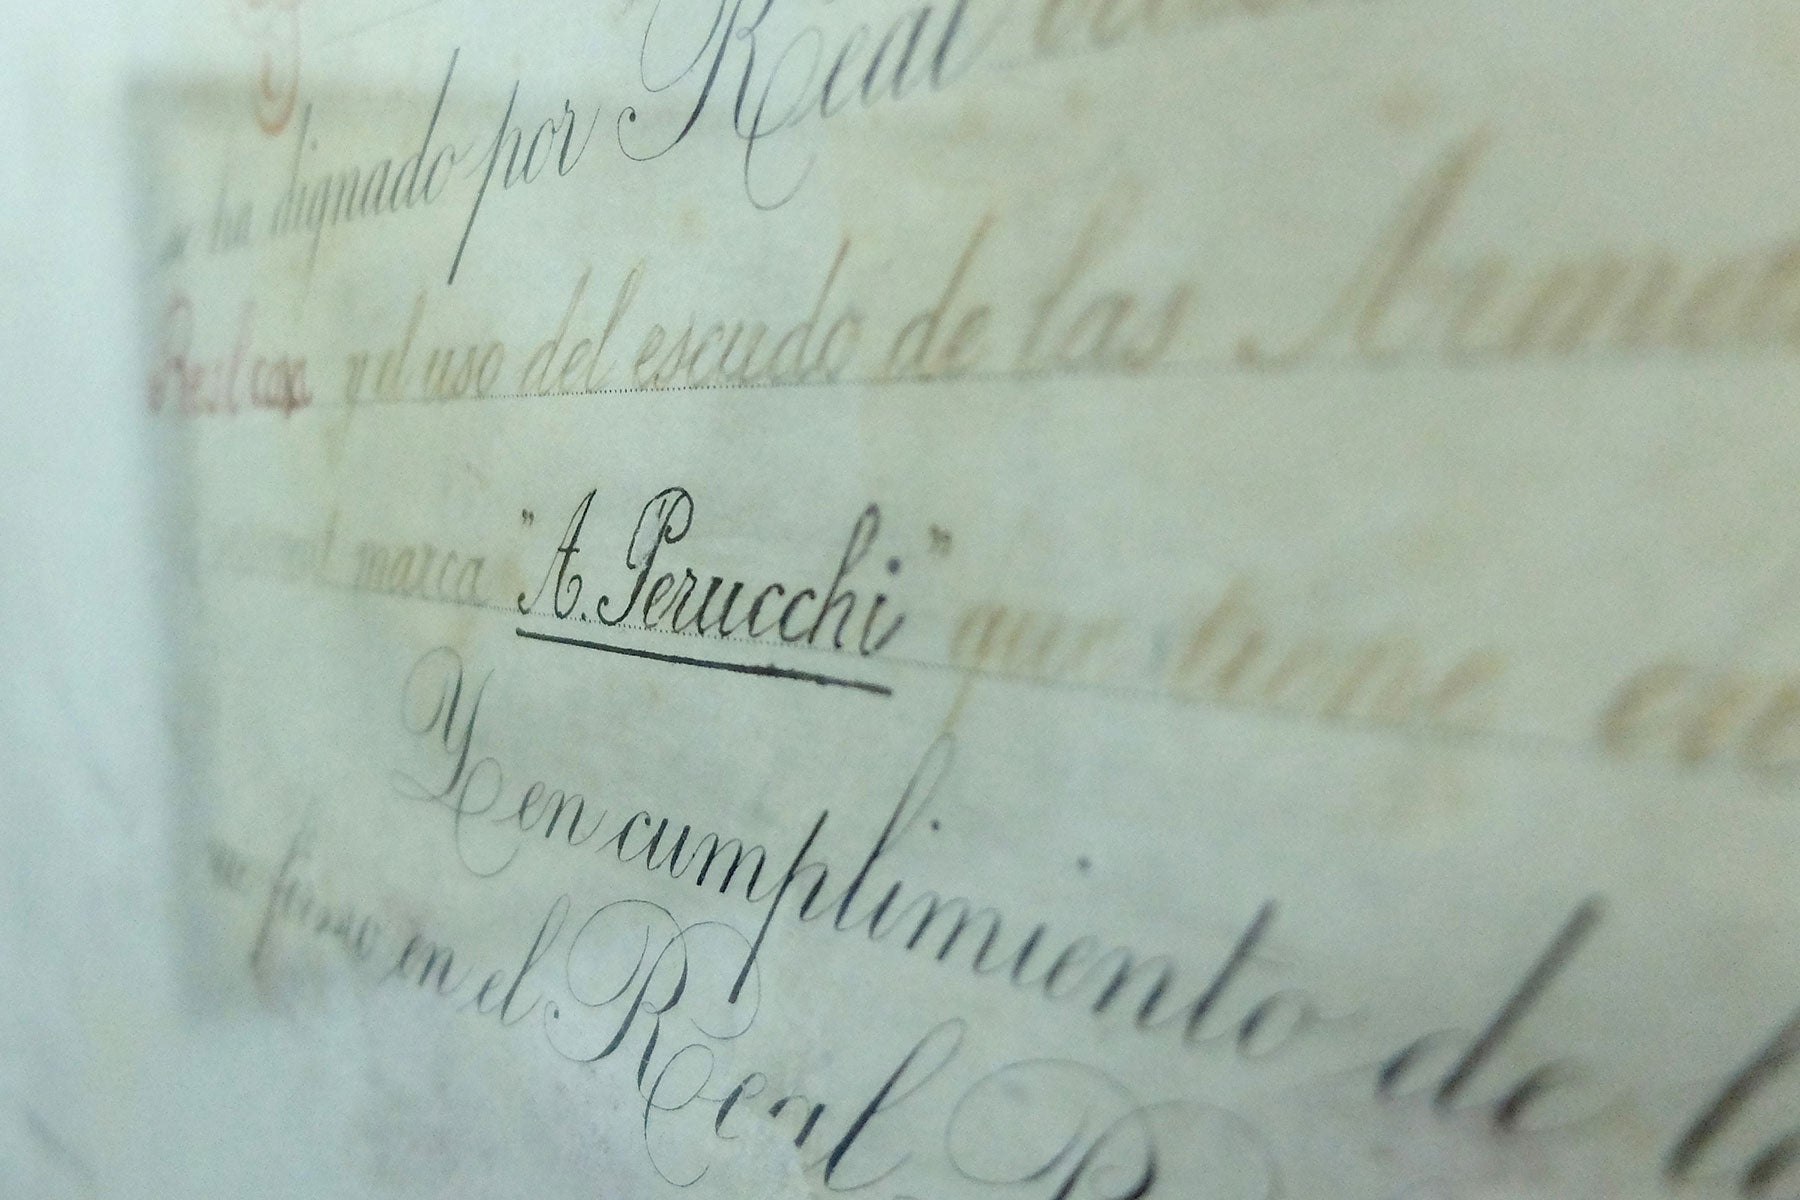 ha dignado por Real
y el uso del escudo de las Armas
marca "A. Perucchi" que tiene
Y en cumplimiento de
firmo en el Real